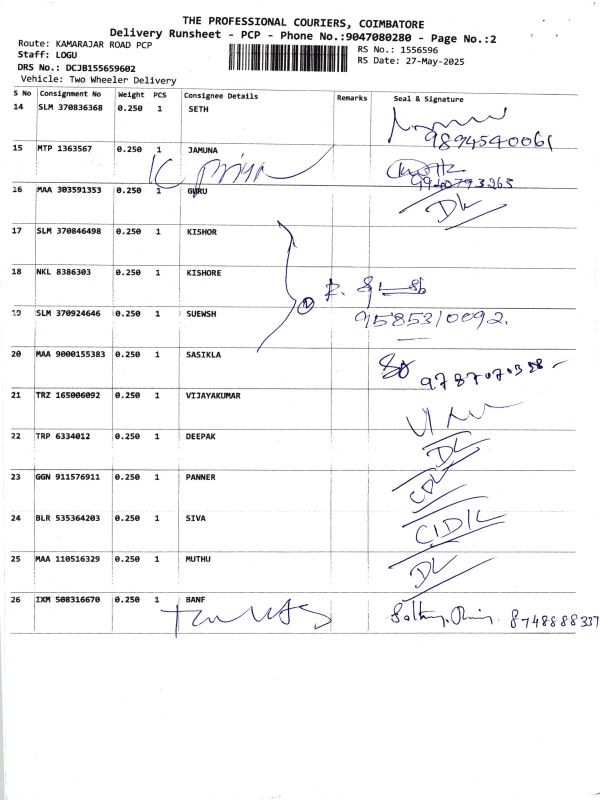 THE PROFESSIONAL COURIERS, COIMBATORE
Delivery Runsheet - PCP - Phone No.:9047080280 - Page No.:2
Route: KAMARAJAR ROAD PCP
Staff: LOGU
DRS No.: DCJB155659602
Vehicle: Two Wheeler Delivery
RS No.: 1556596
RS Date: 27-May-2025
S No Consignment No Weight PCS Consignee Details Remarks Seal & Signature
14 SLM 370836368 0.250 1 SETH
9894540061
15 MTP 1363567 0.250 1 JAMUNA
9940793265
16 MAA 303591353 0.250 1 GURU
DL
17 SLM 370846498 0.250 1 KISHOR
18 NKL 8386303 0.250 1 KISHORE
19 SLM 370924646 0.250 1 SUEWSH
9585310092.
20 MAA 9000155383 0.250 1 SASIKLA
21 TRZ 165006092 0.250 1 VIJAYAKUMAR
22 TRP 6334012 0.250 1 DEEPAK
DL
23 GGN 911576911 0.250 1 PANNER
24 BLR 535364203 0.250 1 SIVA
25 MAA 110516329 0.250 1 MUTHU
DL
26 IXM 508316670 0.250 1 BANF
8748888337